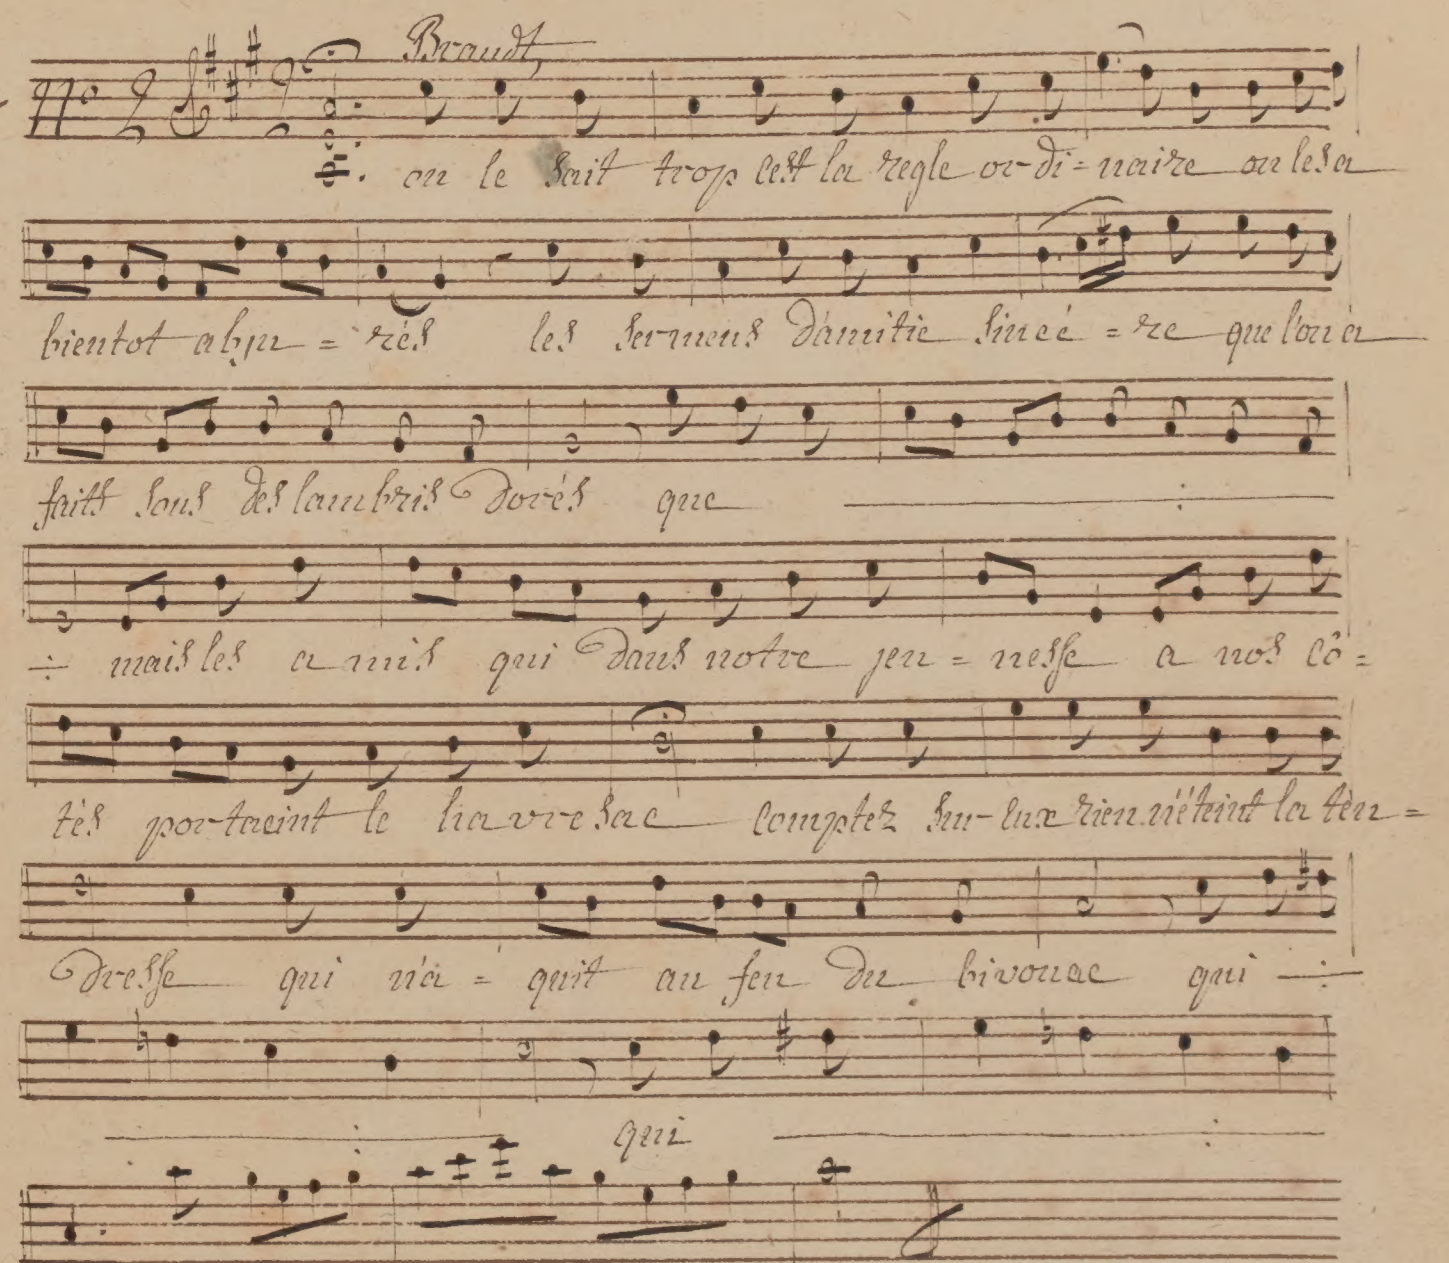 No 2 Brandt,
on le sait trop cest la regle or-di=naire on les a
bientot abju=rés les sermens d'amitie sincé=re que l'on a
faits sous des lambris dorés que ÷
÷ mais les amis qui dans notre jeu=nesse a nos cô=
tés portaeint le havresac comptez sur eux rien n'éteint la tèn=
dresse qui na=quit au feu du bivouac qui ÷
÷ qui ÷